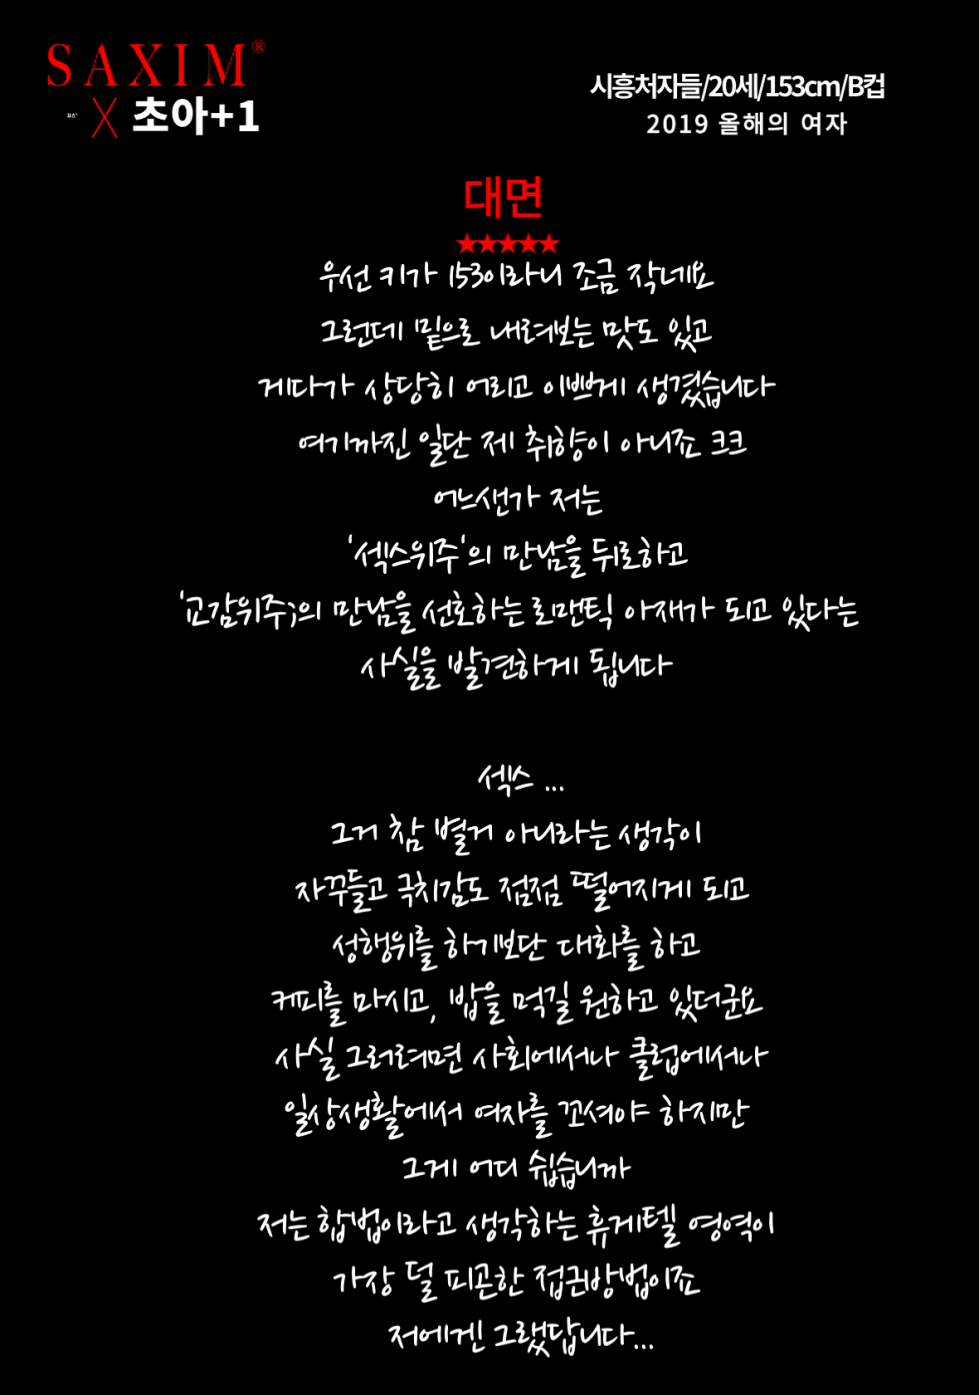 SAXIM®
X 초아+1
시흥처자들/20세/153cm/B컵
2019 올해의 여자
대면
★★★★★
우선 키가 153이라니 조금 작네요
그런데 밑으로 내려보는 맛도 있고
게다가 상당히 어리고 이쁘게 생겼습니다
여기까진 일단 제 취향이 아니죠 크크
어느샌가 저는
'섹스위주'의 만남을 뒤로하고
'교감위주;의 만남을 선호하는 로맨틱 아재가 되고 있다는
사실을 발견하게 됩니다
섹스 ...
그거 참 별거 아니라는 생각이
자꾸들고 극치감도 점점 떨어지게 되고
성행위를 하기보단 대화를 하고
커피를 마시고, 밥을 먹길 원하고 있더군요
사실 그러려면 사회에서나 클럽에서나
일상생활에서 여자를 꼬셔야 하지만
그게 어디 쉽습니까
저는 합법이라고 생각하는 휴게텔 영역이
가장 덜 피곤한 접근방법이죠
저에겐 그랬답니다...